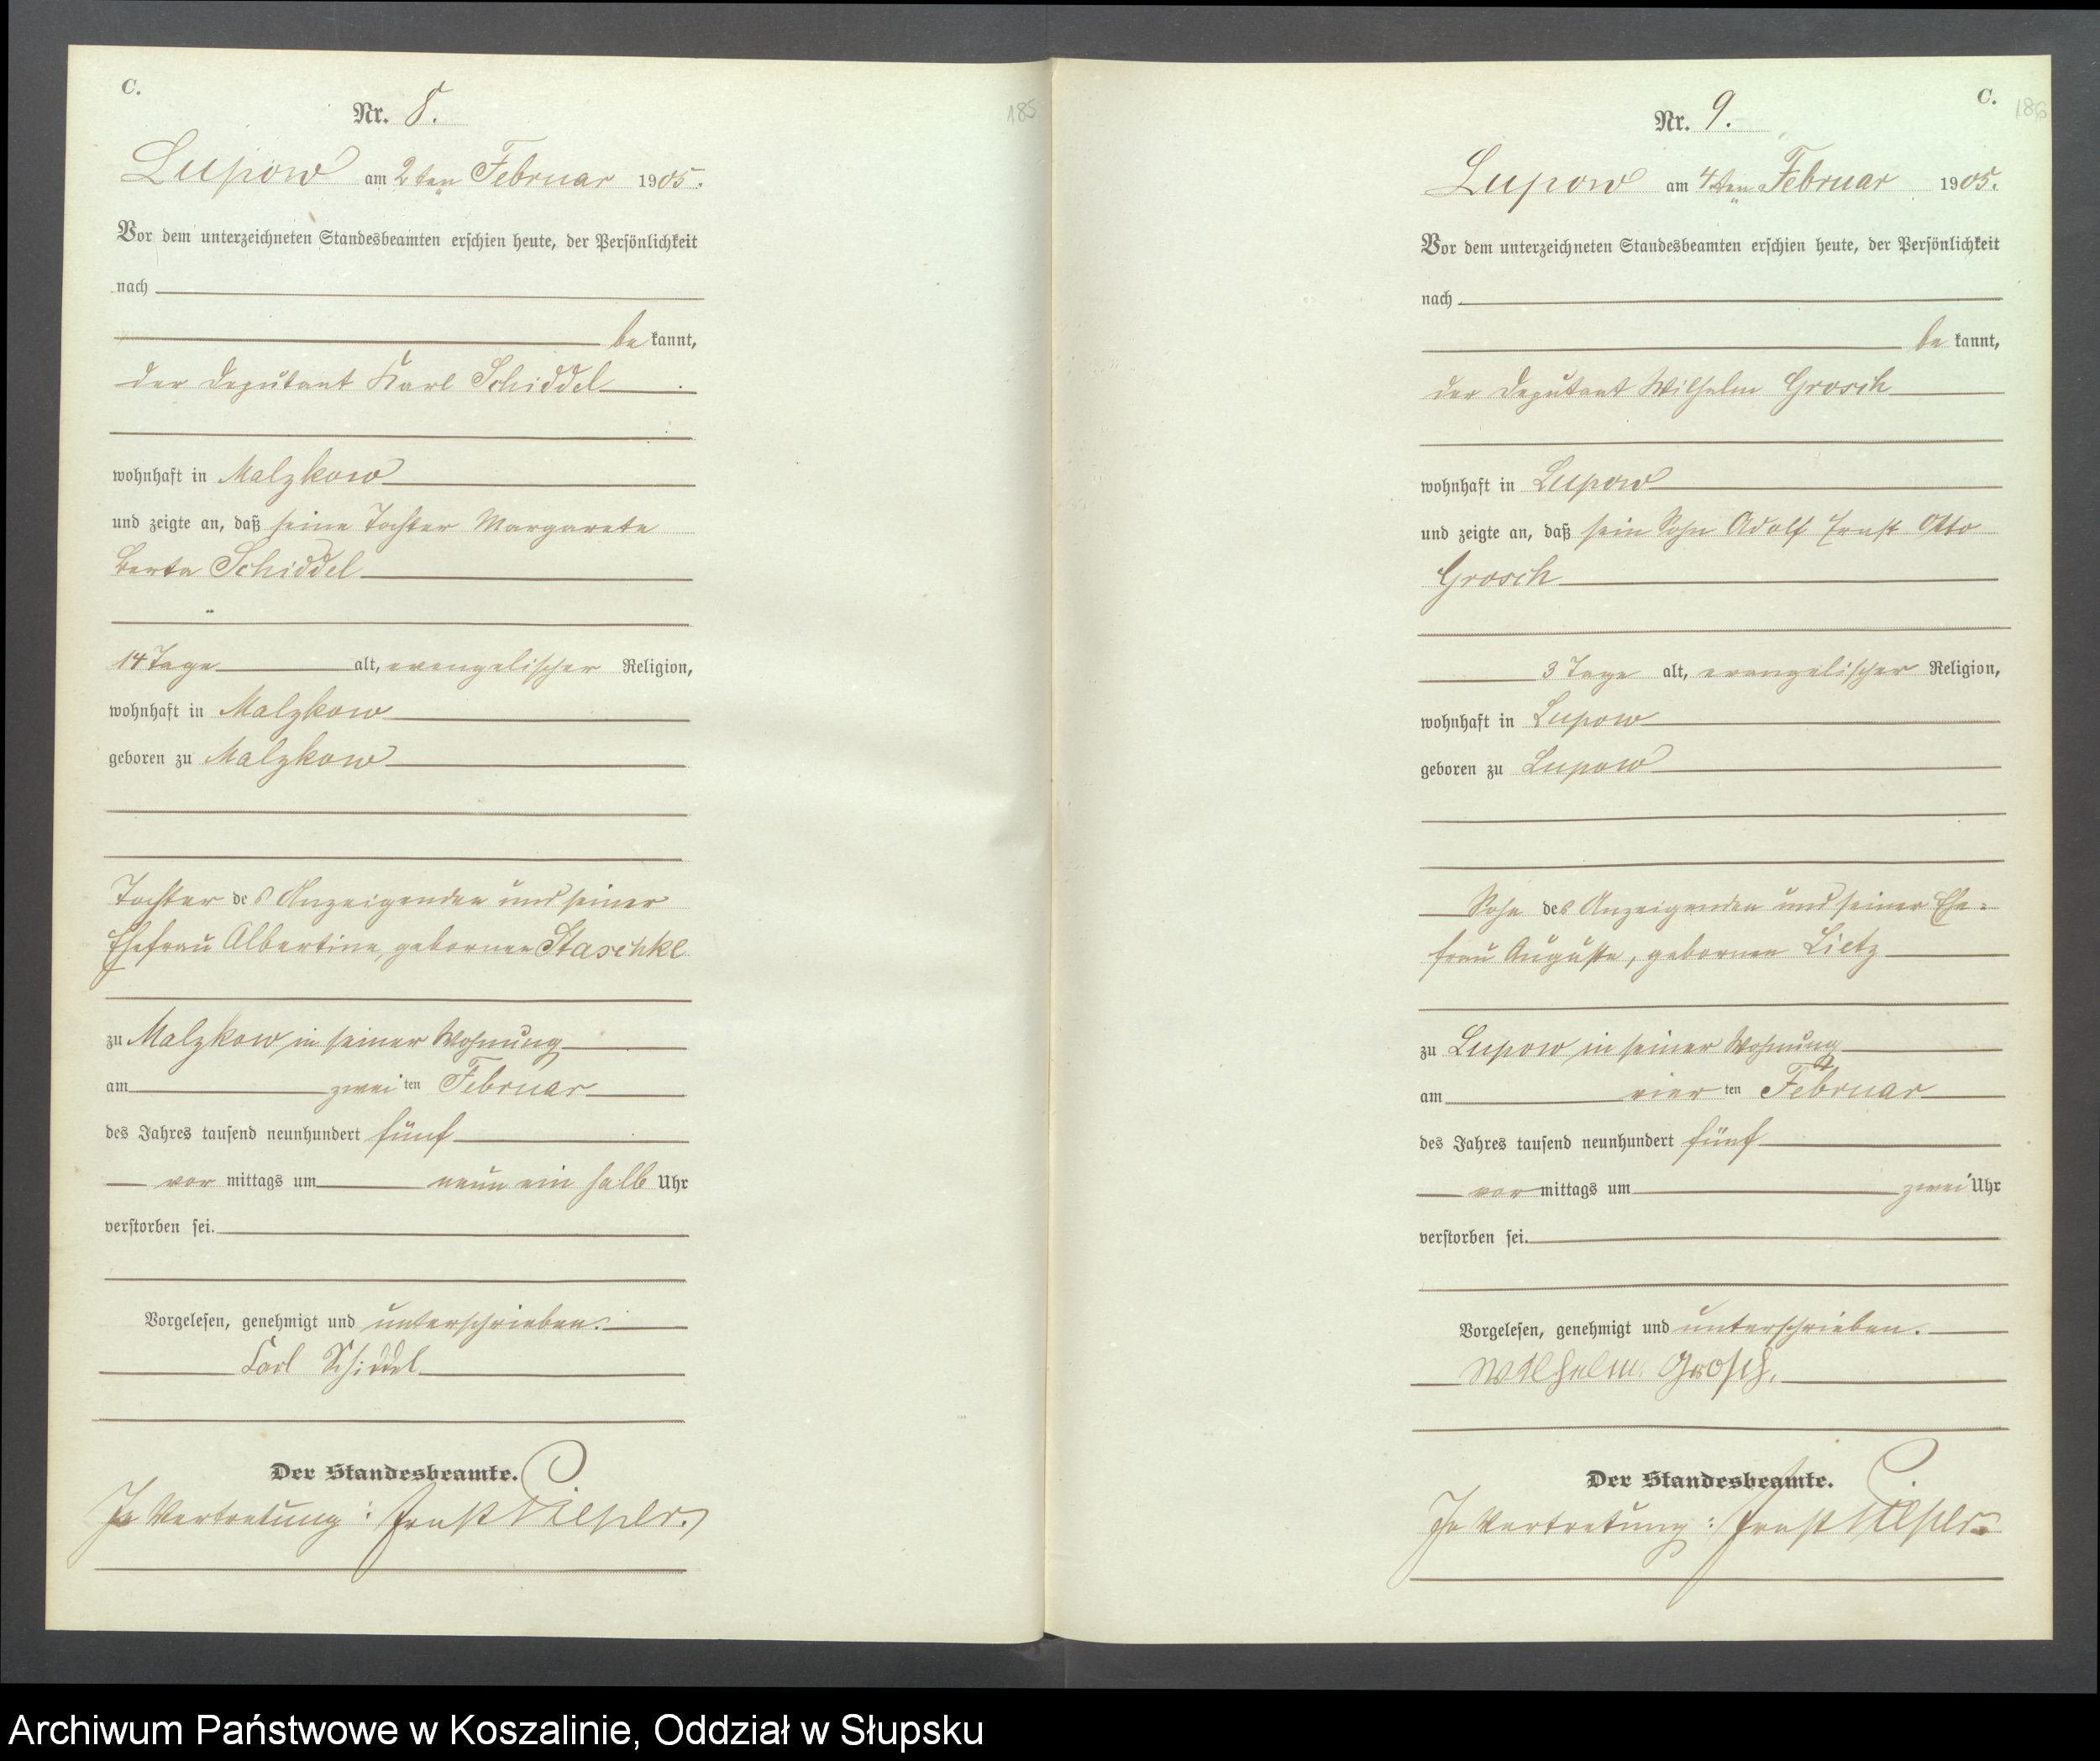 C.
Nr. 8.
185
Lupow am 2ten Februar 1905.
Vor dem unterzeichneten Standesbeamten erschien heute, der Persönlichkeit
nach
be kannt,
der Deputant Karl Schiddel
wohnhaft in Malzkow
und zeigte an, daß seine Tochter Margarete
Berta Schiddel
14 Tage alt, evangelischer Religion,
wohnhaft in Malzkow
geboren zu Malzkow
Tochter des Anzeigenden und seiner
Ehefrau Albertine, geborenen Staschke
zu Malzkow in seiner Wohnung
am zwei ten Februar
des Jahres tausend neunhundert fünf
vor mittags um neun ein halb Uhr
verstorben sei.
Vorgelesen, genehmigt und unterschrieben.
Karl Schiddel
Der Standesbeamte.
In Vertretung: Ernst
C.
186
Nr. 9.
Lupow am 4ten Februar 1905.
Vor dem unterzeichneten Standesbeamten erschien heute, der Persönlichkeit
nach
be kannt,
der Deputant Wilhelm Grosch
wohnhaft in Lupow
und zeigte an, daß sein Sohn Adolf Ernst Otto
Grosch
3 Tage alt, evangelischer Religion,
wohnhaft in Lupow
geboren zu Lupow
Sohn des Anzeigenden und seiner Ehe=
frau Auguste, geborenen Lietz
zu Lupow in seiner Wohnung
am vier ten Februar
des Jahres tausend neunhundert fünf
vor mittags um zwei Uhr
verstorben sei.
Vorgelesen, genehmigt und unterschrieben.
Wilhelm Grosch.
Der Standesbeamte.
In Vertretung: Ernst
Archiwum Państwowe w Koszalinie, Oddział w Słupsku